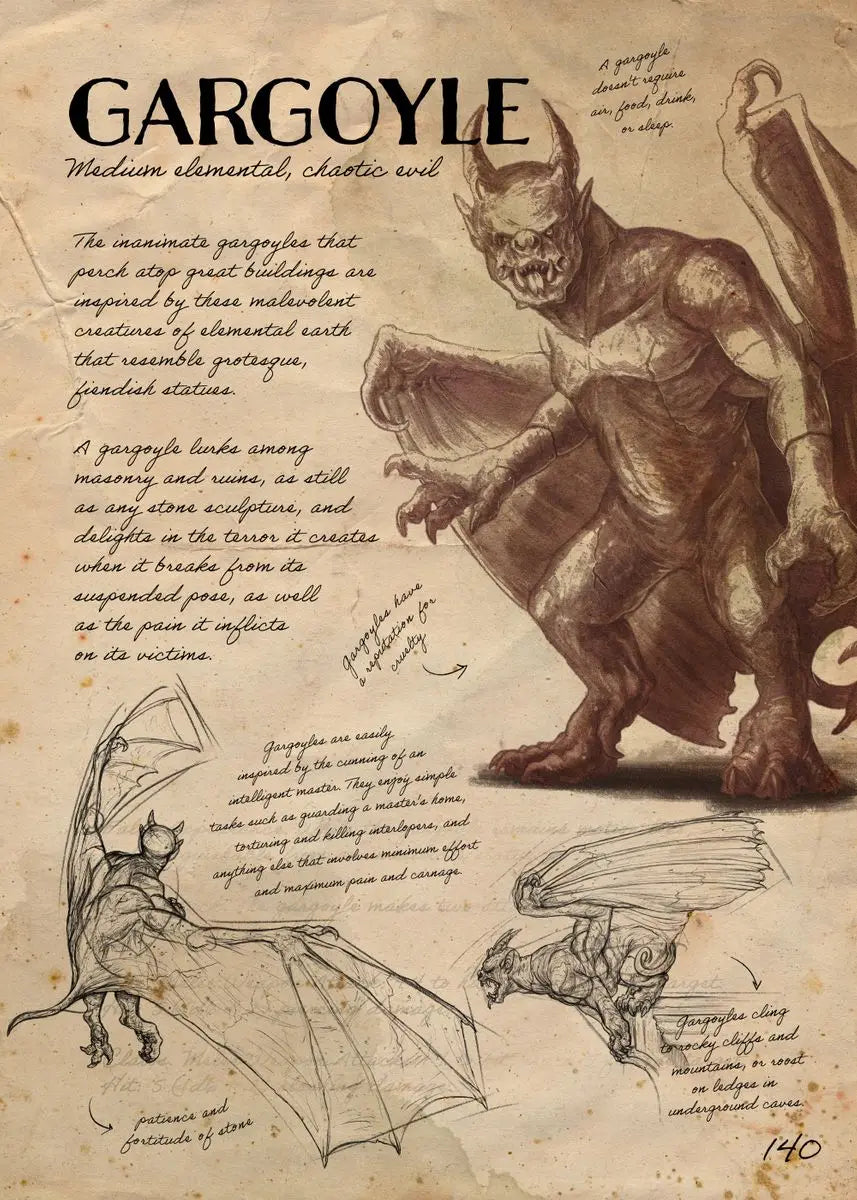 GARGOYLE
Medium elemental, chaotic evil
A gargoyle
doesn't require
air, food, drink,
or sleep.
The inanimate gargoyles that
perch atop great buildings are
inspired by these malevolent
creatures of elemental earth
that resemble grotesque,
fiendish statues.
A gargoyle lurks among
masonry and ruins, as still
as any stone sculpture, and
delights in the terror it creates
when it breaks from its
suspended pose, as well
as the pain it inflicts
on its victims.
Gargoyles have
a reputation for
cruelty
Gargoyles are easily
inspired by the cunning of an
intelligent master. They enjoy simple
tasks such as guarding a master's home,
torturing and killing interlopers, and
anything else that involves minimum effort
and maximum pain and carnage.
remains
gargoyle makes two
Gargoyles cling
to rocky cliffs and
mountains, or roost
on ledges in
underground caves.
patience and
fortitude of stone
140